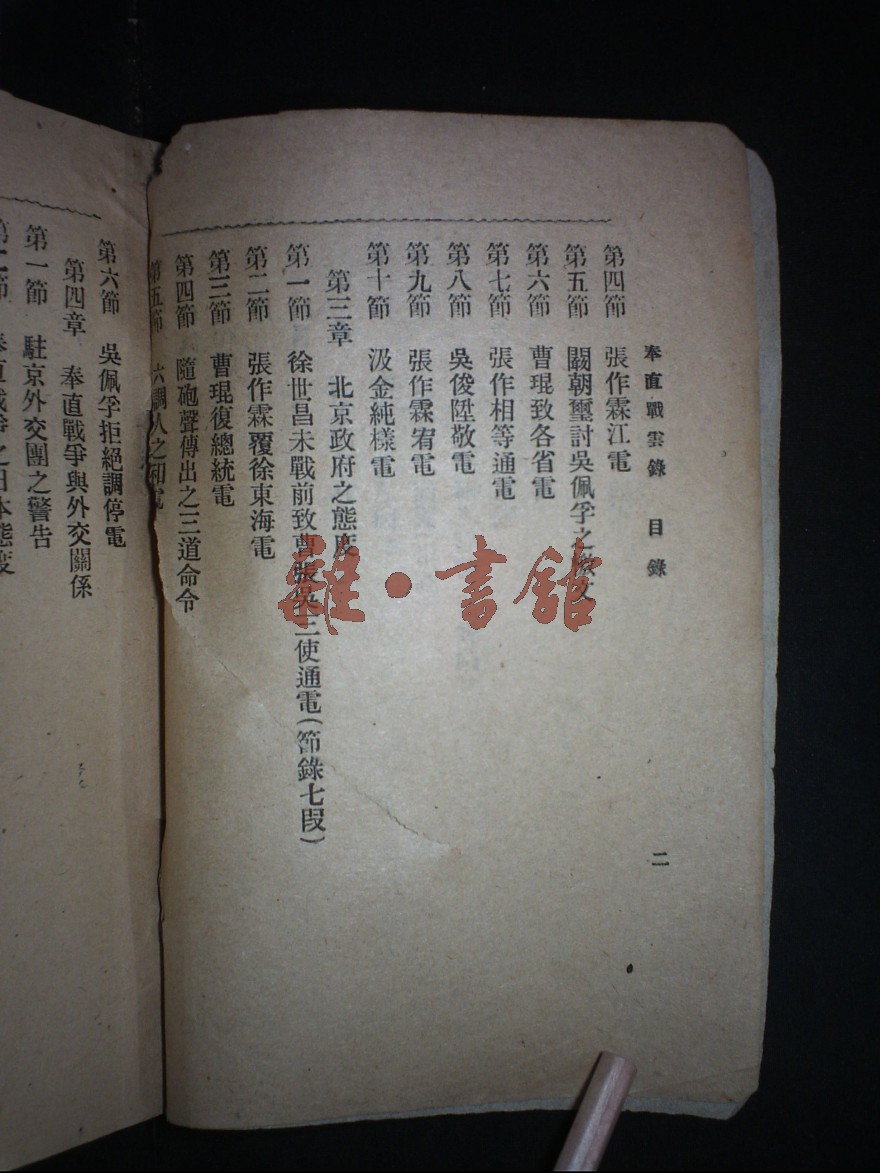 奉直戰雲錄 目錄 二
第四節 張作霖江電
第五節 闞朝璽討吳佩孚之檄文
第六節 曹琨致各省電
第七節 張作相等通電
第八節 吳俊陞敬電
第九節 張作霖宥電
第十節 汲金純樣電
第三章 北京政府之態度
第一節 徐世昌未戰前致曹張吳三使通電(節錄七段)
第二節 張作霖覆徐東海電
第三節 曹琨復總統電
第四節 隨砲聲傳出之三道命令
第五節 六調人之和電
第六節 吳佩孚拒絕調停電
第四章 奉直戰爭與外交關係
第一節 駐京外交團之警告
第二節 奉直戰爭之日本態度
羅·書館